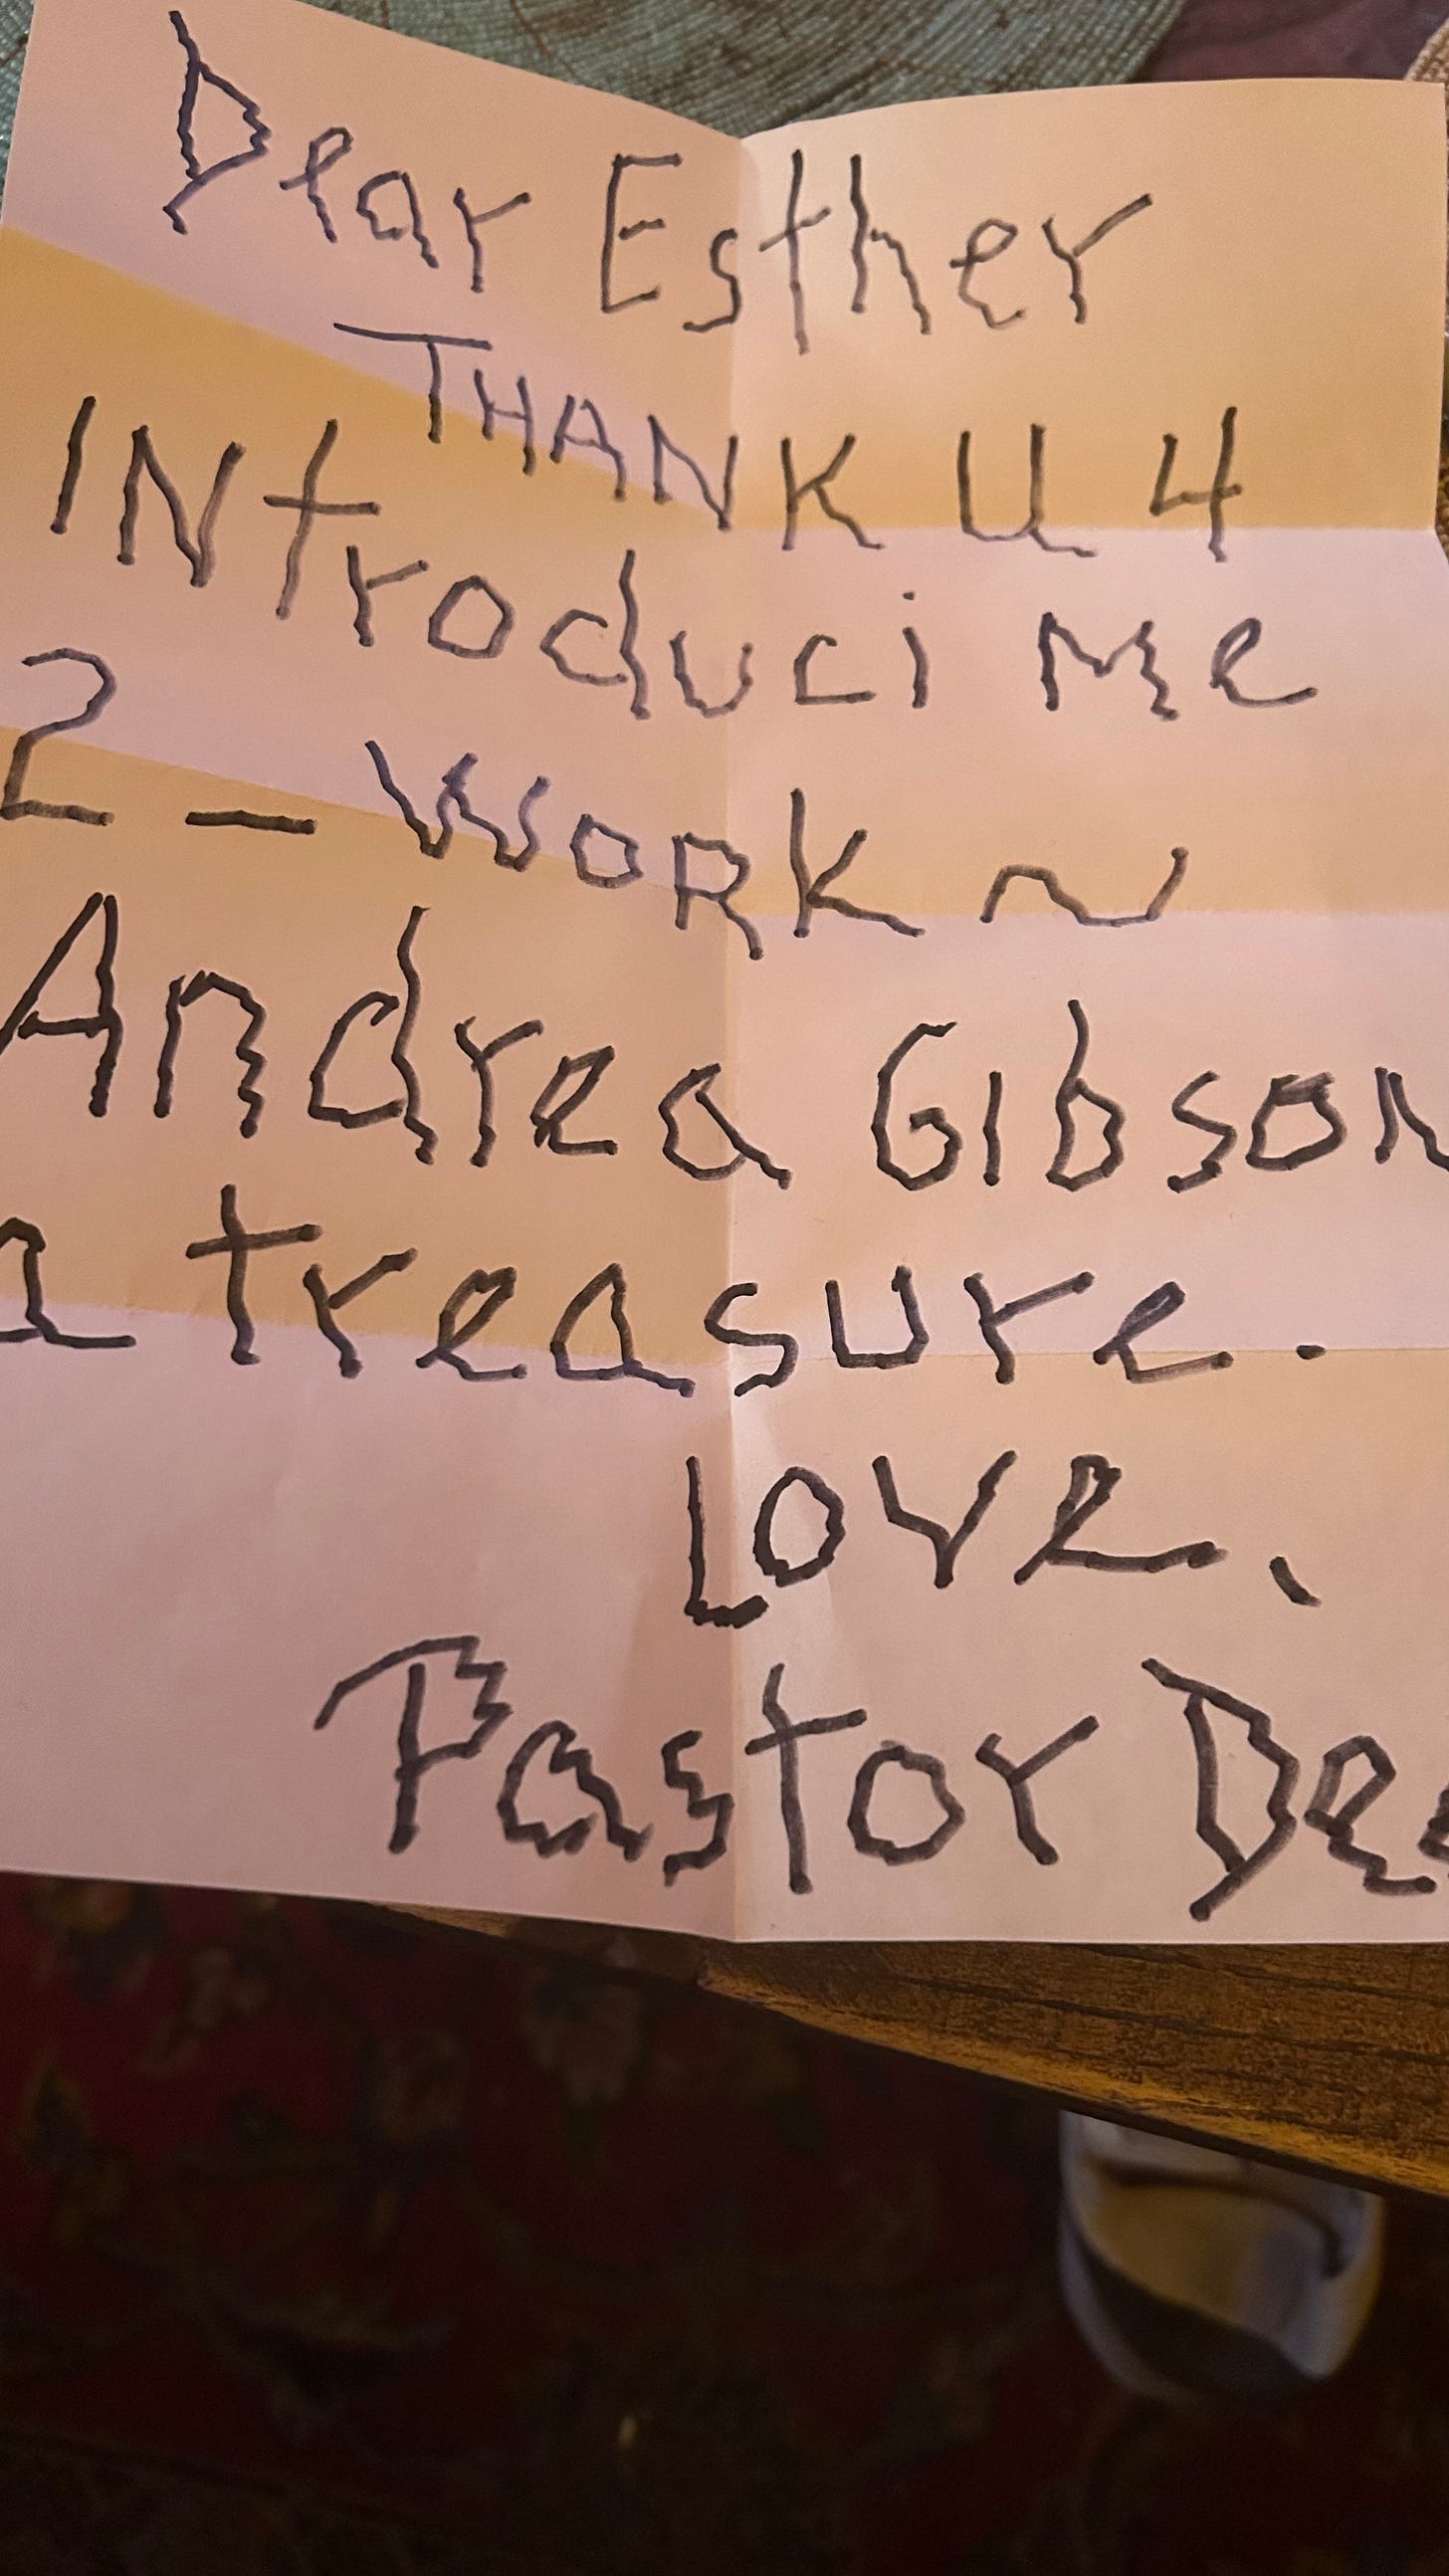 Dear Esther
THANK U 4
INtroduci Me
2 — WORK ~
Andrea Gibson
a treasure.
Love,
Pastor De